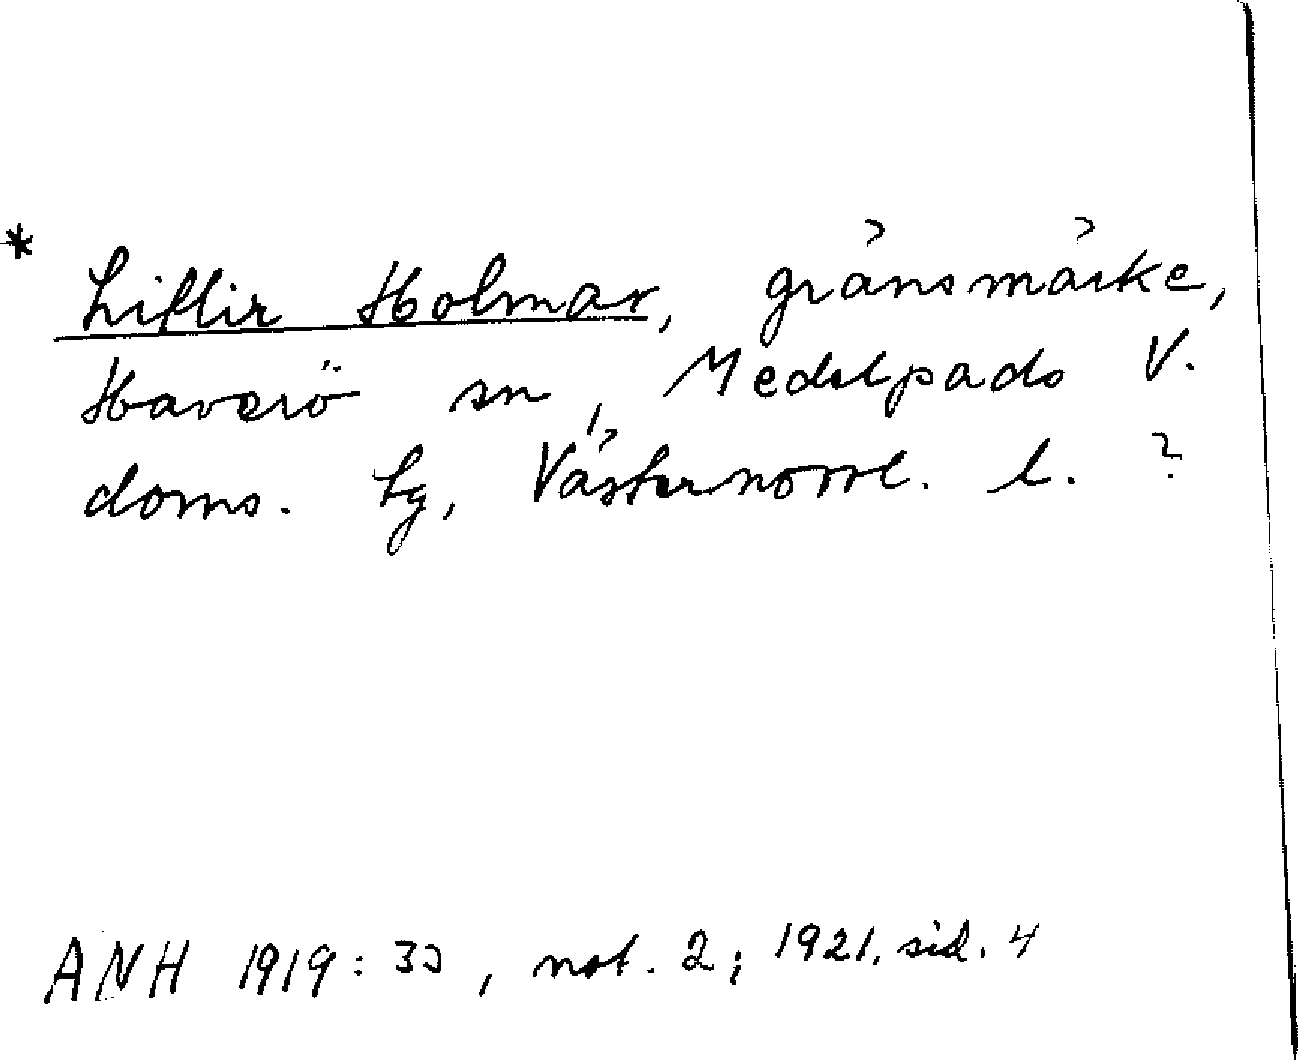 * Liflir Holmar, gränsmärke,
Haverö sn, Medelpads V.
doms. tg, Västernorrl. l. ?
ANH 1919: 33, not. 2; 1921, sid. 4